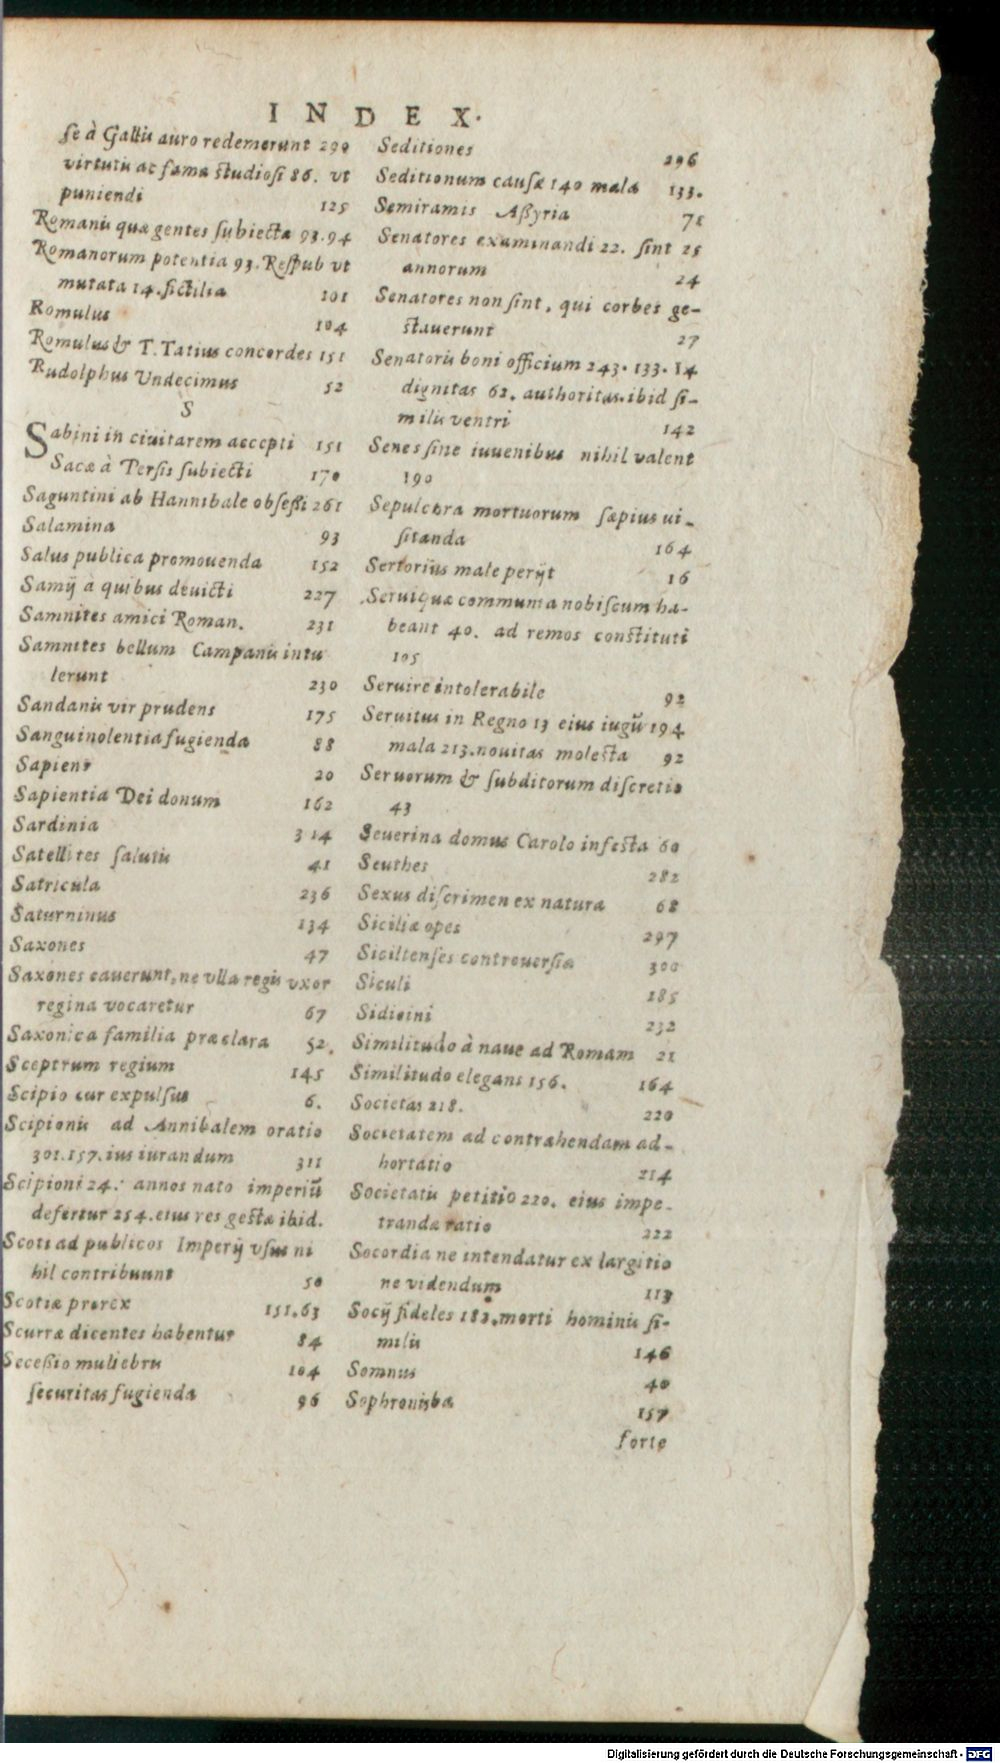 INDEX.
se à Gallis auro redemerunt 290
virtutis ac famæ studiosi 86. vt
puniendi 125
Romanis quæ gentes subiectæ 93.94
Romanorum potentia 93. Respub vt
mutata 14. fictilia 101
Romulus 104
Romulus & T. Tatius concordes 151
Rudolphus Undecimus 52
S
Sabini in ciuitatem accepti 151
Sacæ à Persis subiecti 170
Saguntini ab Hannibale obseßi 261
Salamina 93
Salus publica promouenda 152
Samij à quibus deuicti 227
Samnites amici Roman. 231
Samnites bellum Campanis intu
lerunt 230
Sandanis vir prudens 175
Sanguinolentia fugienda 88
Sapiens 20
Sapientia Dei donum 162
Sardinia 314
Satellites salutis 41
Satricula 236
Saturninus 134
Saxones 47
Saxones cauerunt, ne vlla regis vxor
regina vocaretur 67
Saxonica familia præclara 52.
Sceptrum regium 145
Scipio cur expulsus 6.
Scipionis ad Annibalem oratio
301.157. ius iurandum 311
Scipioni 24. annos nato imperiū
defertur 254. eius res gestæ ibid.
Scoti ad publicos Imperij vsus ni
hil contribuunt 50
Scotiæ prorex 151.63
Scurræ dicentes habentur 84
Seceßio muliebris 104
securitas fugienda 96
Seditiones 296
Seditionum causæ 140 mala 133.
Semiramis Aßyria 71
Senatores examinandi 22. sint 25
annorum 24
Senatores non sint, qui corbes ge-
stauerunt 27
Senatoris boni officium 243. 133. 14
dignitas 62. authoritas. ibid si-
milis ventri 142
Senes sine iuuenibus nihil valent
190
Sepulchra mortuorum sæpius ui-
sitanda 164
Sertorius male perijt 16
Serui quæ communia nobiscum ha-
beant 40. ad remos constituti
105
Seruire intolerabile 92
Seruitus in Regno 13 eius iugū 194
mala 213. nouitas molesta 92
Seruorum & subditorum discretio
43
Seuerina domus Carolo infesta 60
Seuthes 282
Sexus discrimen ex natura 68
Siciliæ opes 297
Sicilienses controuersiæ 300
Siculi 185
Sidicini 232
Similitudo à naue ad Romam 21
Similitudo elegans 156. 164
Societas 218. 220
Societatem ad contrahendam ad-
hortatio 214
Societatis petitio 220. eius impe-
trandæ ratio 222
Socordia ne intendatur ex largitio
ne videndum 113
Socij fideles 183. morti hominis si-
milis 146
Somnus 40
Sophronisba 157
forte
Digitalisierung gefördert durch die Deutsche Forschungsgemeinschaft - DFG